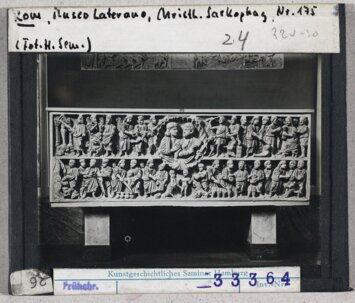 Rom, Museo Laterano, Christl. Sarkophag, Nr. 175
(Fot. H. Sem.)
24
320-30
26
Frühchr.
Kunstgeschichtliches Seminar Hamburg
Inv. Nr.
33364